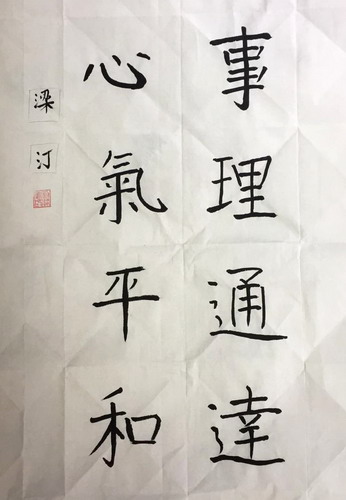 事理通達
心氣平和
梁汀